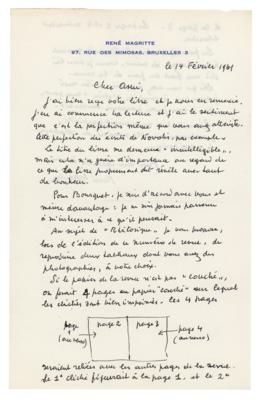 RENÉ MAGRITTE
97, RUE DES MIMOSAS, BRUXELLES 3
le 14 Février 1961
Cher Ami,
J'ai bien reçu votre livre et je vous en remercie.
J'en ai commencé la lecture et j'ai le sentiment
que c'est la perfection même que vous avez atteinte.
Cette perfection des écrits de Novalis, par exemple.
Le titre du livre me demeure "inintelligible",
mais cela n'a guère d'importance au regard de
ce que le livre proprement dit révèle avec tant
de bonheur.
Pour Bousquet, je suis d'accord avec vous et
même davantage : je ne suis jamais parvenu
à m'intéresser à ce qu'il écrivait.
Au sujet de "Rhétorique". Je vous propose,
lors de l'édition de ce numéro de revue, de
reproduire deux tableaux dont vous avez des
photographies, à votre choix.
Si le papier de la revue n'est pas "couché",
on ferait 4 pages en papier "couché" sur lequel
les clichés sont bien imprimés. les 4 pages
page 1
(au verso)
page 2
page 3
page 4
(au verso)
seraient reliées avec les autres pages de la revue.
Le 1er cliché figurerait à la page 1, et le 2e